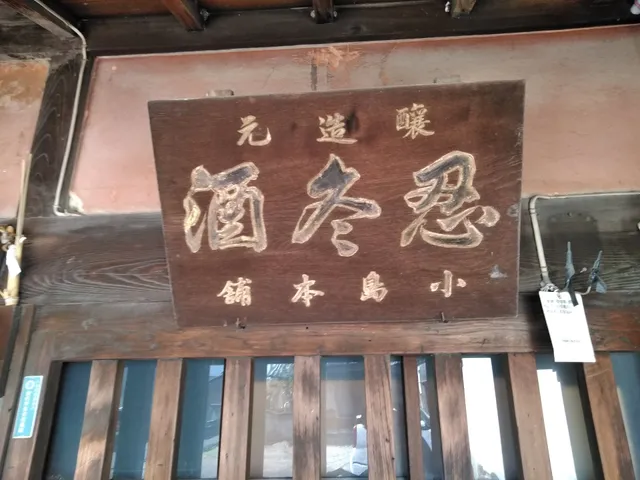 釀造元
忍冬酒
小島本舖